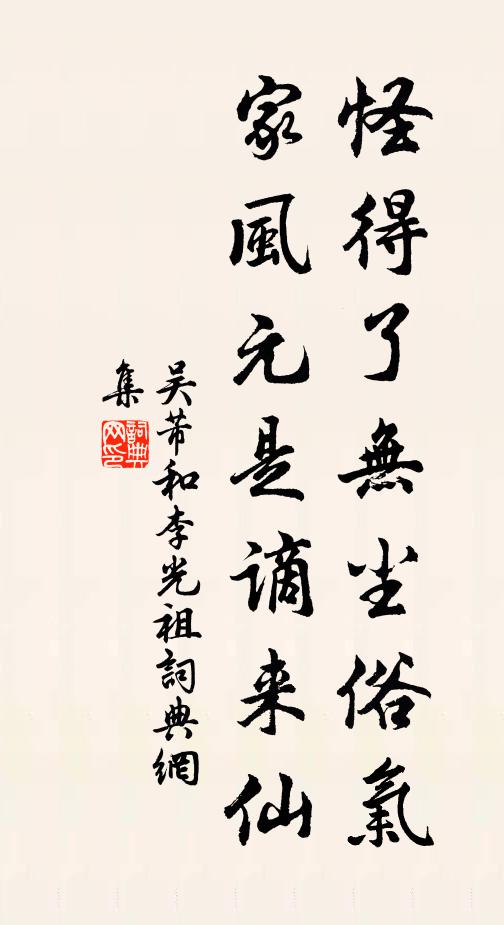 怪得了無尘俗氣
家風元是謫来仙
吴芾和李光祖詞典網
集
詞典
网印